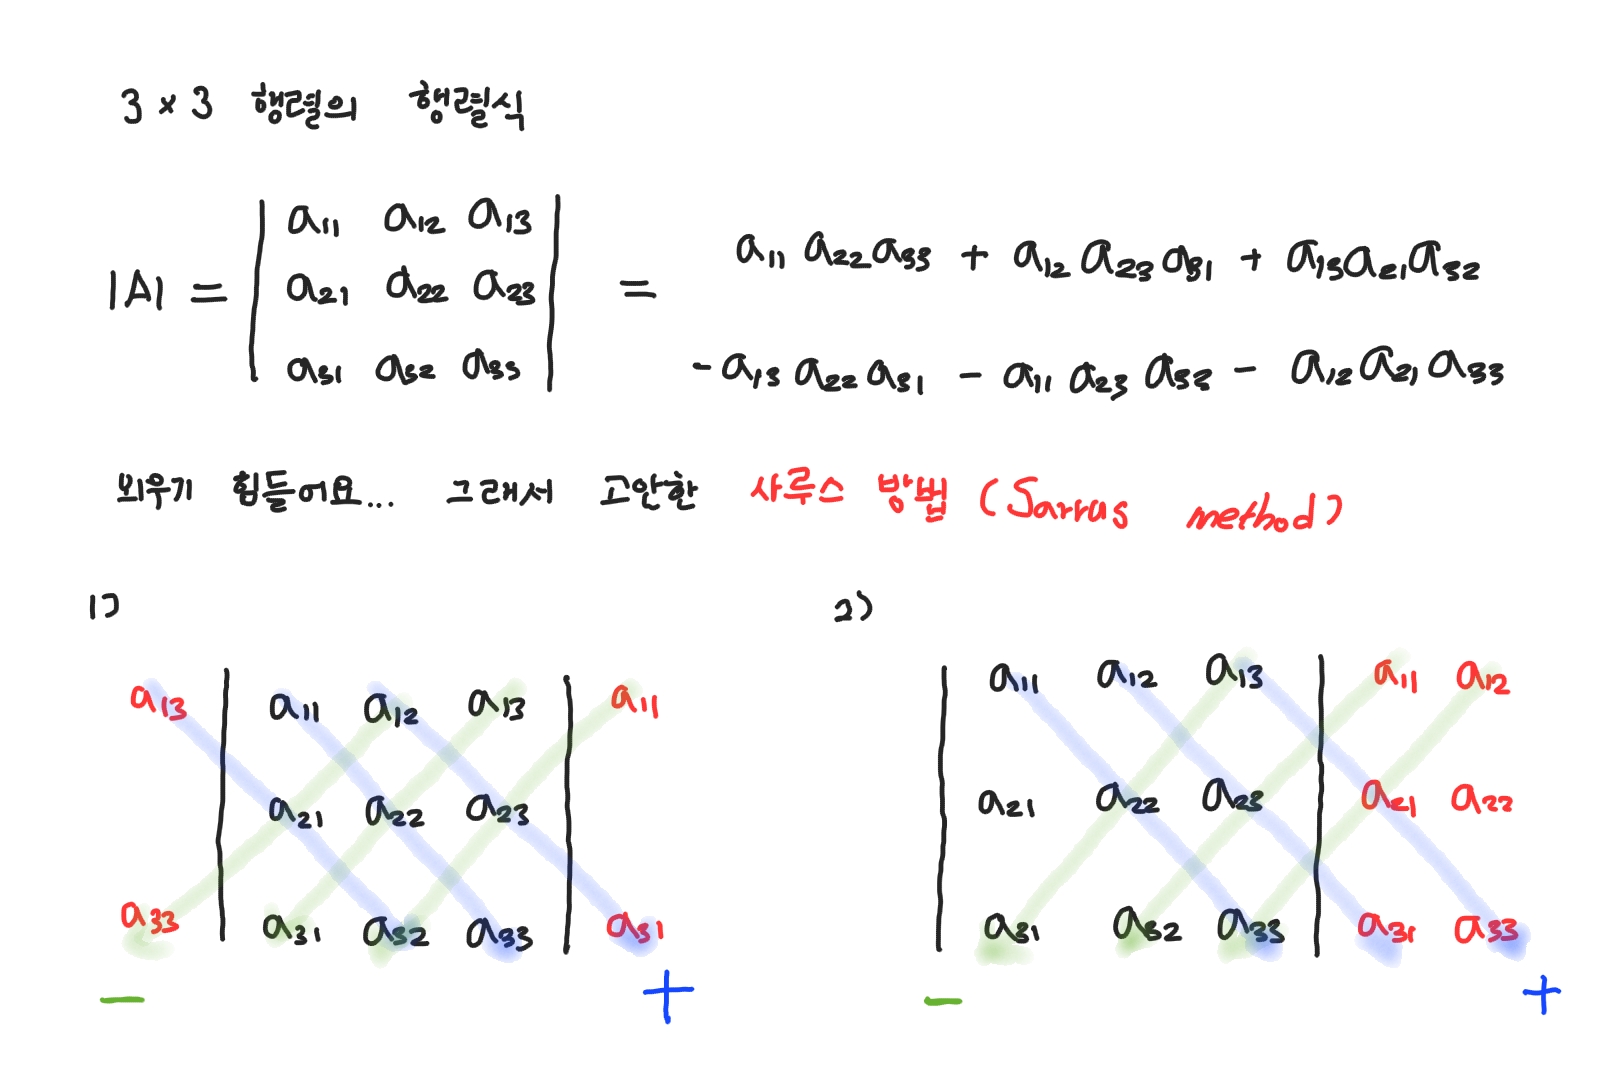 3 × 3 행렬의 행렬식
|A| = | a₁₁ a₁₂ a₁₃ | = a₁₁ a₂₂ a₃₃ + a₁₂ a₂₃ a₃₁ + a₁₃ a₂₁ a₃₂
| a₂₁ a₂₂ a₂₃ |
| a₃₁ a₃₂ a₃₃ | - a₁₃ a₂₂ a₃₁ - a₁₁ a₂₃ a₃₂ - a₁₂ a₂₁ a₃₃
외우기 힘들어요... 그래서 고안한 사루스 방법 (Sarrus method)
1)
a₁₃ | a₁₁ a₁₂ a₁₃ | a₁₁
a₂₁ a₂₂ a₂₃
a₃₃ | a₃₁ a₃₂ a₃₃ | a₃₁
- +
2)
| a₁₁ a₁₂ a₁₃ | a₁₁ a₁₂
| a₂₁ a₂₂ a₂₃ | a₂₁ a₂₂
| a₃₁ a₃₂ a₃₃ | a₃₁ a₃₃
- +